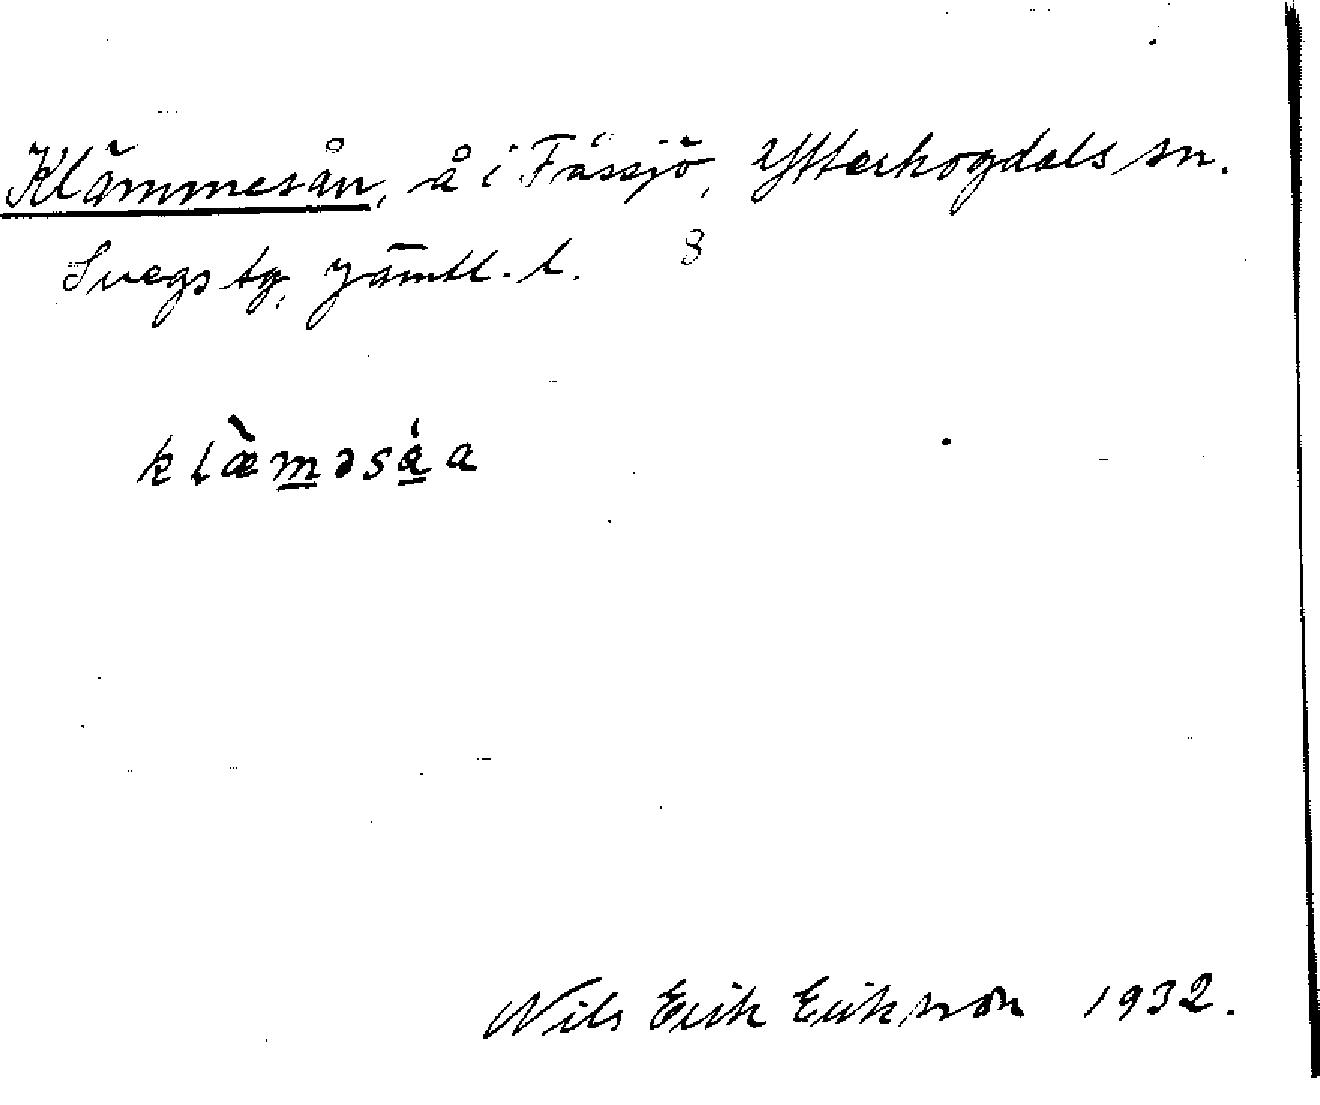 Klämmesån, å i Fåssjö, Ytterhogdals sn.
Svegs tg, Jämtl. l. 8
klæ̀m̲əsá̲a
Nils Erik Eriksson 1932.